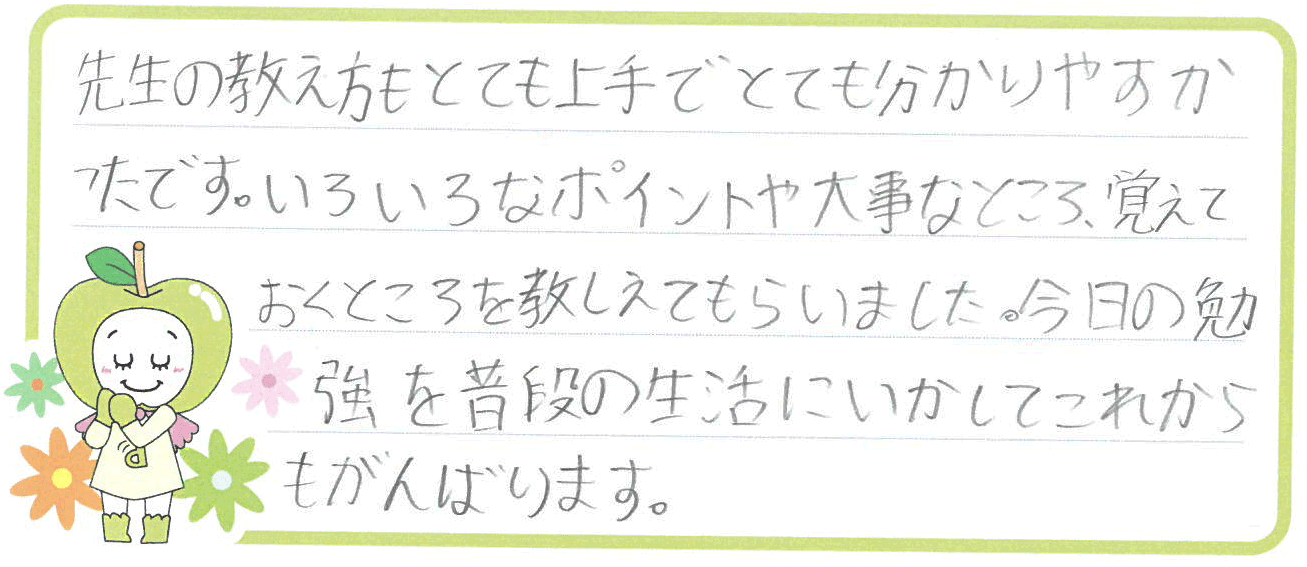 先生の教え方もとても上手でとても分かりやすか
ったです。いろいろなポイントや大事なところ、覚えて
おくところを教しえてもらいました。今日の勉
強を昔段の生活にいかしてこれから
もがんばります。